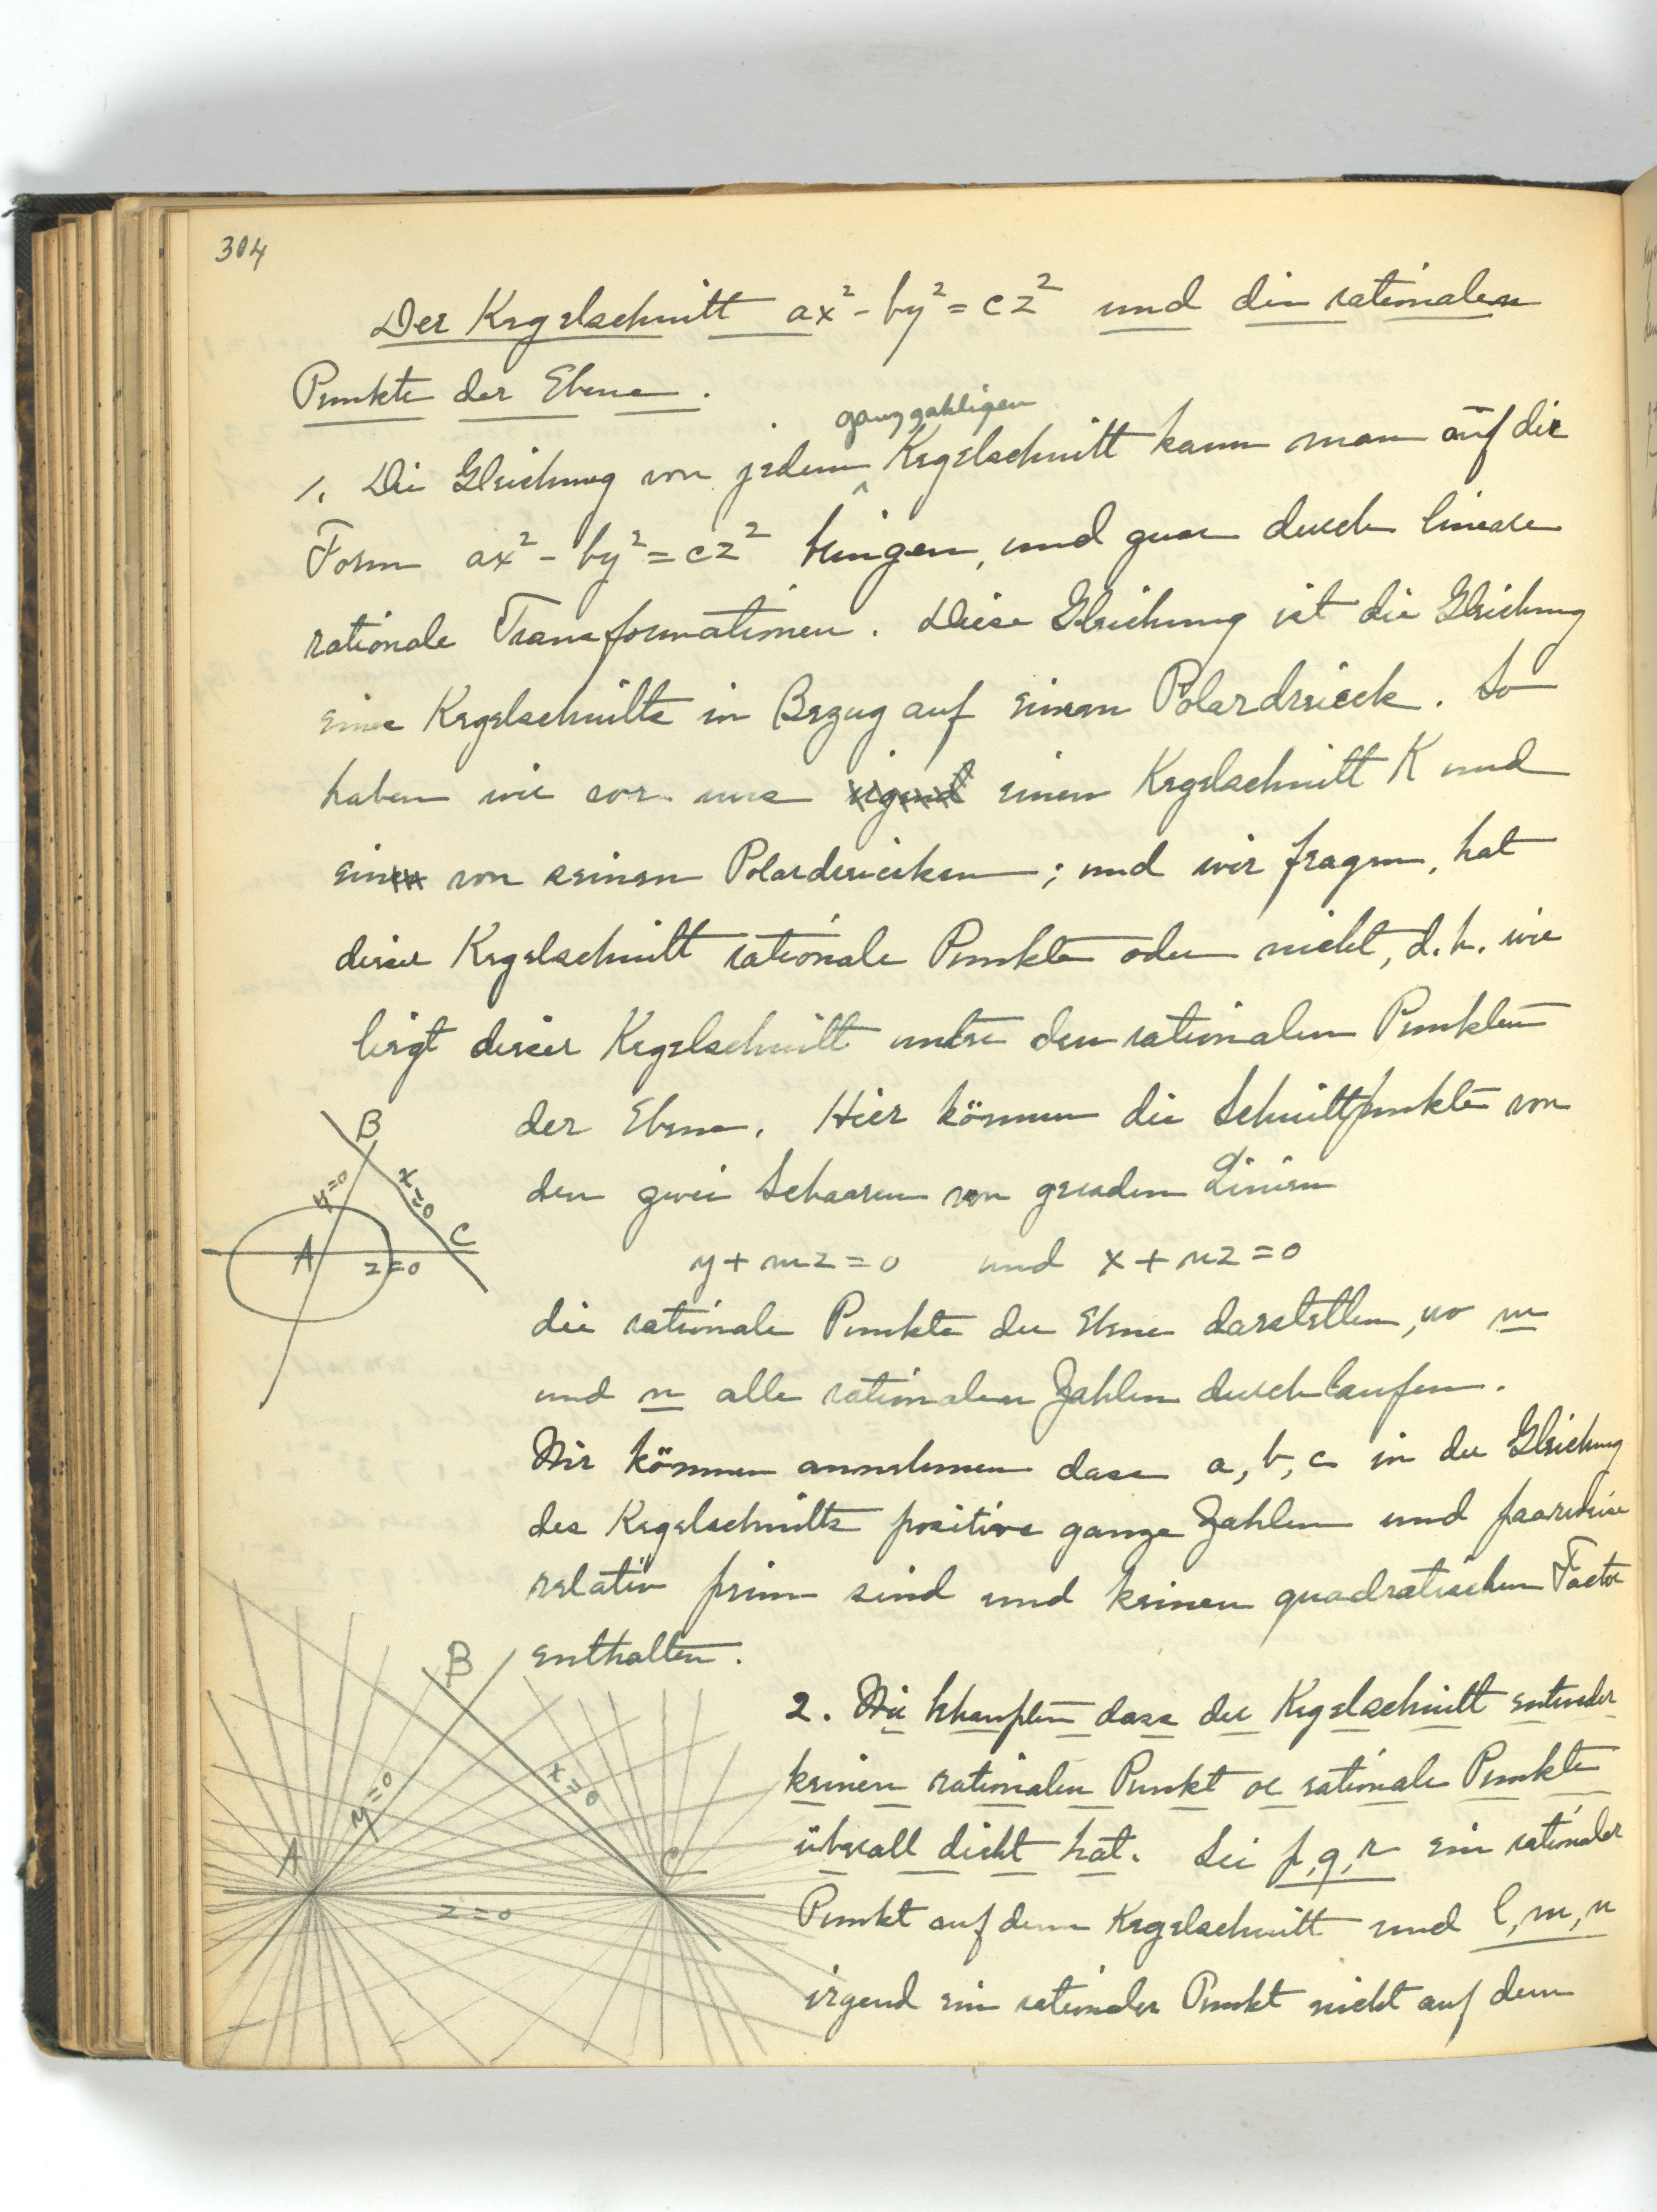 304
Der Kegelschnitt ax² - by² = cz² und die rationalen
Punkte der Ebene.
ganzzahligen
1. Die Gleichung von jedem Kegelschnitt kann man auf die
Form ax² - by² = cz² bringen, und zwar durch lineare
rationale Transformationen. Diese Gleichung ist die Gleichung
eines Kegelschnitts in Bezug auf einem Polardreieck. So
haben wir vor uns irgend einen Kegelschnitt K und
ein von seinen Polardreiecken; und wir fragen, hat
dieser Kegelschnitt rationale Punkte oder nicht, d.h. wie
liegt dieser Kegelschnitt unter den rationalen Punkten
der Ebene. Hier können die Schnittpunkte von
den zwei Schaaren von geraden Linien
y + mz = 0 und x + nz = 0
die rationale Punkte der Ebene darstellen, wo m
und n alle rationalen Zahlen durchlaufen.
Wir können annehmen dass a, b, c in der Gleichung
des Kegelschnitts positive ganze Zahlen und paarweise
relativ prim sind und keinen quadratischen Factor
enthalten.
B
y=0
x=0
A
C
z=0
2. Wir behaupten dass der Kegelschnitt entweder
keinen rationalen Punkt oc rationale Punkte
überall dicht hat. Sei p, q, r ein rationaler
Punkt auf dem Kegelschnitt und l, m, n
irgend ein rationaler Punkt nicht auf dem
B
y=0
x=0
A
C
z=0